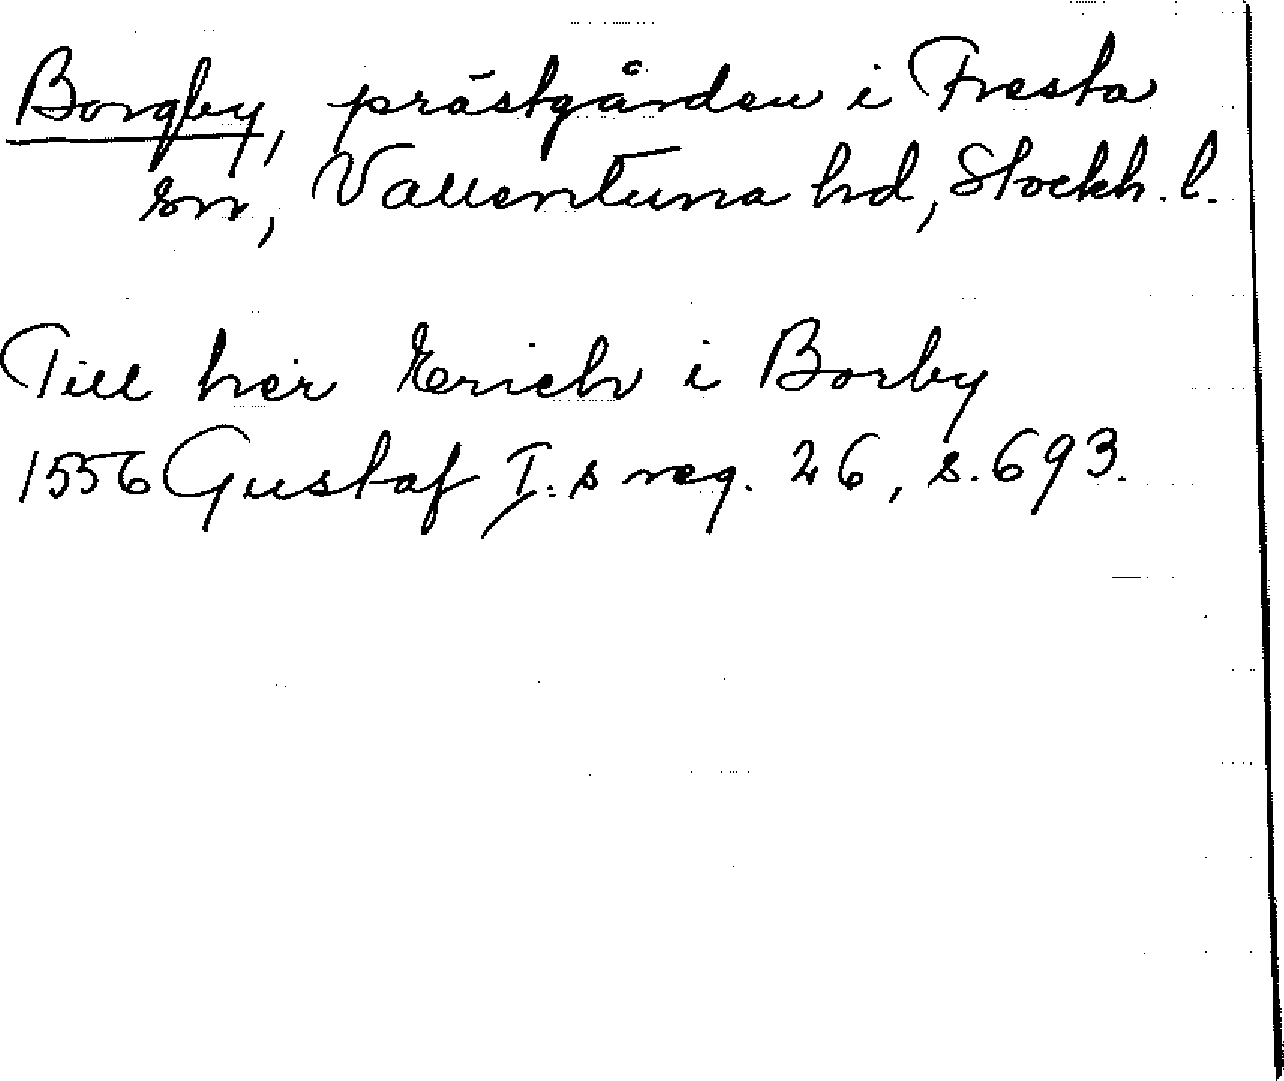 Borgby, prästgården i Fresta
sn, Vallentuna hd, Stockh. l.
Till her Erich i Borby
1556 Gustaf I:s reg. 26, s. 693.